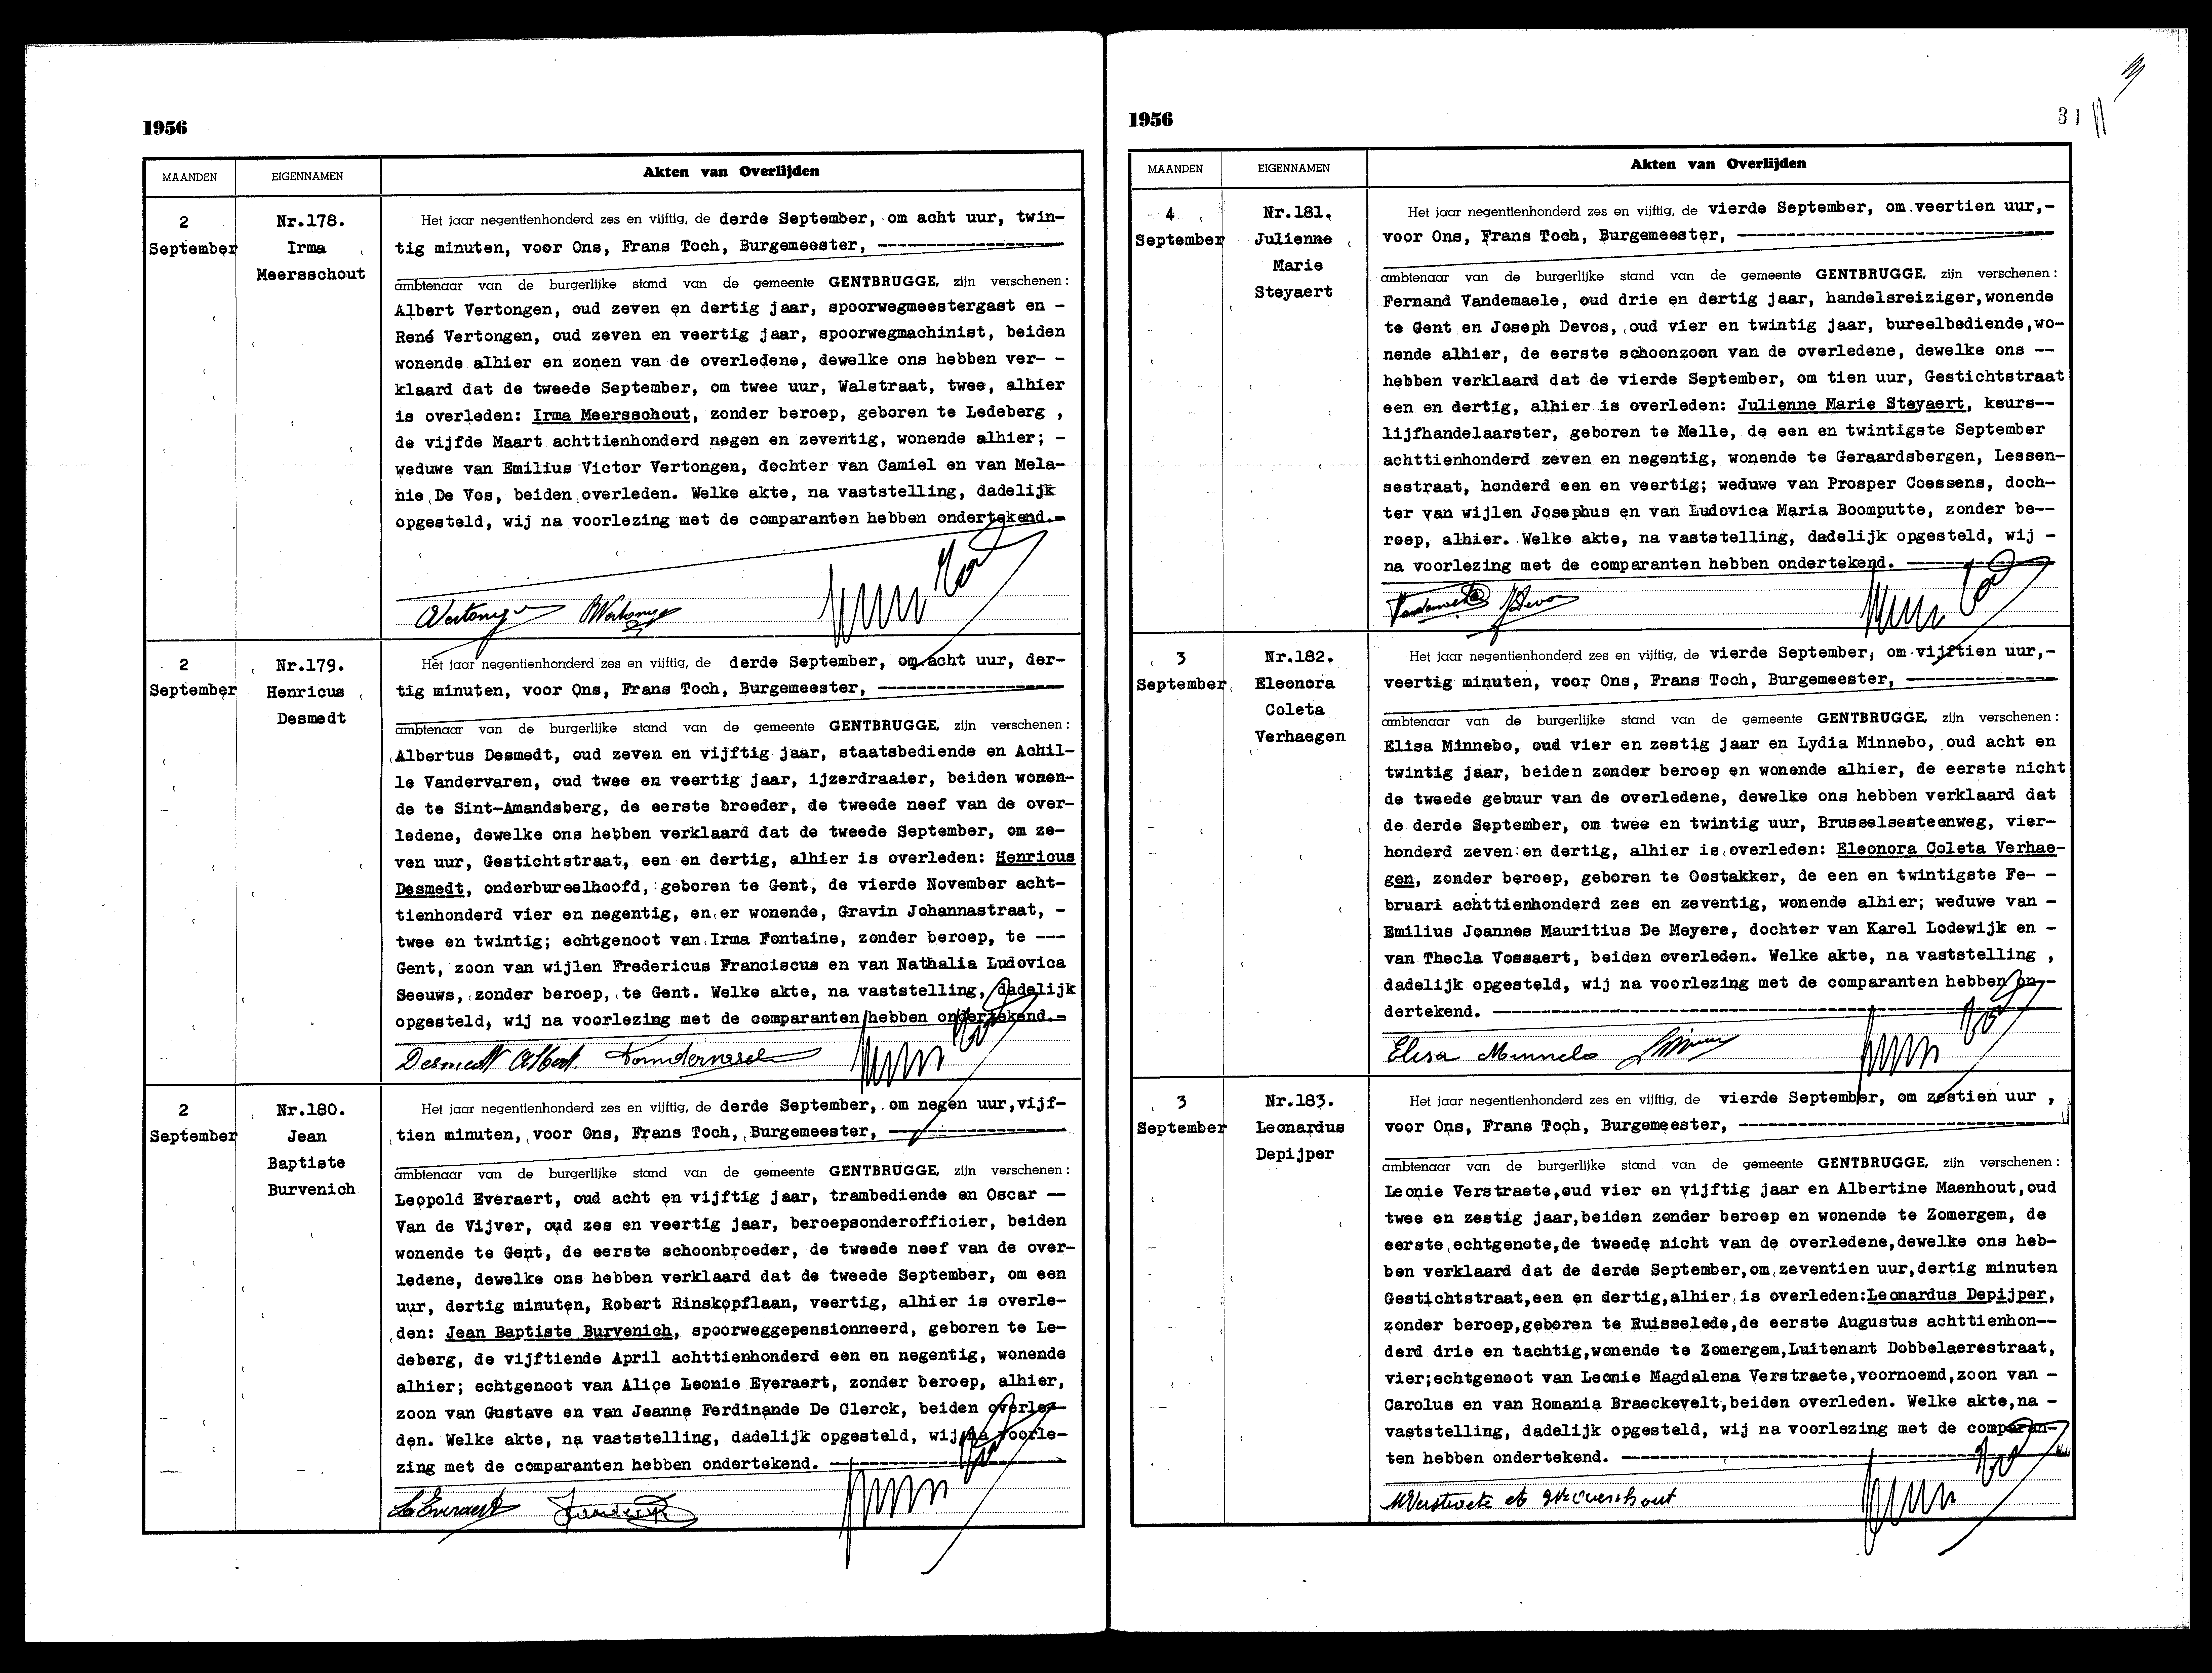 1956
MAANDEN EIGENNAMEN Akten van Overlijden
2
September
Nr.178.
Irma
Meersschout
Het jaar negentienhonderd zes en vijftig, de derde September, om acht uur, twin-
tig minuten, voor Ons, Frans Toch, Burgemeester, ----
ambtenaar van de burgerlijke stand van de gemeente GENTBRUGGE, zijn verschenen:
Albert Vertongen, oud zeven en dertig jaar, spoorwegmeestergast en -
René Vertongen, oud zeven en veertig jaar, spoorwegmachinist, beiden
wonende alhier en zonen van de overledene, dewelke ons hebben ver- -
klaard dat de tweede September, om twee uur, Walstraat, twee, alhier
is overleden: Irma Meersschout, zonder beroep, geboren te Ledeberg ,
de vijfde Maart achttienhonderd negen en zeventig, wonende alhier; -
weduwe van Emilius Victor Vertongen, dochter van Camiel en van Mela-
nie De Vos, beiden overleden. Welke akte, na vaststelling, dadelijk
opgesteld, wij na voorlezing met de comparanten hebben ondertekend.-
2
September
Nr.179.
Henricus
Desmedt
Het jaar negentienhonderd zes en vijftig, de derde September, om acht uur, der-
tig minuten, voor Ons, Frans Toch, Burgemeester, ----
ambtenaar van de burgerlijke stand van de gemeente GENTBRUGGE, zijn verschenen:
Albertus Desmedt, oud zeven en vijftig jaar, staatsbediende en Achil-
le Vandervaren, oud twee en veertig jaar, ijzerdraaier, beiden wonen-
de te Sint-Amandsberg, de eerste broeder, de tweede neef van de over-
ledene, dewelke ons hebben verklaard dat de tweede September, om ze-
ven uur, Gestichtstraat, een en dertig, alhier is overleden: Henricus
Desmedt, onderbureelhoofd, geboren te Gent, de vierde November acht-
tienhonderd vier en negentig, en er wonende, Gravin Johannastraat, -
twee en twintig; echtgenoot van Irma Fontaine, zonder beroep, te ---
Gent, zoon van wijlen Fredericus Franciscus en van Nathalia Ludovica
Seeuws, zonder beroep, te Gent. Welke akte, na vaststelling, dadelijk
opgesteld, wij na voorlezing met de comparanten hebben ondertekend.-
Desmedt Albert.
2
September
Nr.180.
Jean
Baptiste
Burvenich
Het jaar negentienhonderd zes en vijftig, de derde September, om negen uur, vijf-
tien minuten, voor Ons, Frans Toch, Burgemeester, ----
ambtenaar van de burgerlijke stand van de gemeente GENTBRUGGE, zijn verschenen:
Leopold Everaert, oud acht en vijftig jaar, trambediende en Oscar --
Van de Vijver, oud zes en veertig jaar, beroepsonderofficier, beiden
wonende te Gent, de eerste schoonbroeder, de tweede neef van de over-
ledene, dewelke ons hebben verklaard dat de tweede September, om een
uur, dertig minuten, Robert Rinskopflaan, veertig, alhier is overle-
den: Jean Baptiste Burvenich, spoorweggepensionneerd, geboren te Le-
deberg, de vijftiende April achttienhonderd een en negentig, wonende
alhier; echtgenoot van Alice Leonie Everaert, zonder beroep, alhier,
zoon van Gustave en van Jeanne Ferdinande De Clerck, beiden overle-
den. Welke akte, na vaststelling, dadelijk opgesteld, wij na voorle-
zing met de comparanten hebben ondertekend. ----
1956
31
MAANDEN EIGENNAMEN Akten van Overlijden
4
September
Nr.181.
Julienne
Marie
Steyaert
Het jaar negentienhonderd zes en vijftig, de vierde September, om veertien uur,-
voor Ons, Frans Toch, Burgemeester, ----
ambtenaar van de burgerlijke stand van de gemeente GENTBRUGGE, zijn verschenen:
Fernand Vandemaele, oud drie en dertig jaar, handelsreiziger, wonende
te Gent en Joseph Devos, oud vier en twintig jaar, bureelbediende, wo-
nende alhier, de eerste schoonzoon van de overledene, dewelke ons --
hebben verklaard dat de vierde September, om tien uur, Gestichtstraat
een en dertig, alhier is overleden: Julienne Marie Steyaert, keurs--
lijfhandelaarster, geboren te Melle, de een en twintigste September
achttienhonderd zeven en negentig, wonende te Geraardsbergen, Lessen-
sestraat, honderd een en veertig; weduwe van Prosper Coessens, doch-
ter van wijlen Josephus en van Ludovica Maria Boomputte, zonder be--
roep, alhier. Welke akte, na vaststelling, dadelijk opgesteld, wij -
na voorlezing met de comparanten hebben ondertekend. ----
3
September
Nr.182.
Eleonora
Coleta
Verhaegen
Het jaar negentienhonderd zes en vijftig, de vierde September, om vijftien uur,-
veertig minuten, voor Ons, Frans Toch, Burgemeester, ----
ambtenaar van de burgerlijke stand van de gemeente GENTBRUGGE, zijn verschenen:
Elisa Minnebo, oud vier en zestig jaar en Lydia Minnebo, oud acht en
twintig jaar, beiden zonder beroep en wonende alhier, de eerste nicht
de tweede gebuur van de overledene, dewelke ons hebben verklaard dat
de derde September, om twee en twintig uur, Brusselsesteenweg, vier-
honderd zeven en dertig, alhier is overleden: Eleonora Coleta Verhae-
gen, zonder beroep, geboren te Oostakker, de een en twintigste Fe- -
bruari achttienhonderd zes en zeventig, wonende alhier; weduwe van -
Emilius Joannes Mauritius De Meyere, dochter van Karel Lodewijk en -
van Thecla Vossaert, beiden overleden. Welke akte, na vaststelling ,
dadelijk opgesteld, wij na voorlezing met de comparanten hebben on--
dertekend. ----
Elisa Minnebo
3
September
Nr.183.
Leonardus
Depijper
Het jaar negentienhonderd zes en vijftig, de vierde September, om zestien uur ,
voor Ons, Frans Toch, Burgemeester, ----
ambtenaar van de burgerlijke stand van de gemeente GENTBRUGGE, zijn verschenen:
Leonie Verstraete, oud vier en vijftig jaar en Albertine Maenhout, oud
twee en zestig jaar, beiden zonder beroep en wonende te Zomergem, de
eerste echtgenote, de tweede nicht van de overledene, dewelke ons heb-
ben verklaard dat de derde September, om zeventien uur, dertig minuten
Gestichtstraat, een en dertig, alhier is overleden: Leonardus Depijper,
zonder beroep, geboren te Ruisselede, de eerste Augustus achttienhon--
derd drie en tachtig, wonende te Zomergem, Luitenant Dobbelaerestraat,
vier; echtgenoot van Leonie Magdalena Verstraete, voornoemd, zoon van -
Carolus en van Romania Braeckevelt, beiden overleden. Welke akte, na -
vaststelling, dadelijk opgesteld, wij na voorlezing met de comparan-
ten hebben ondertekend. ----